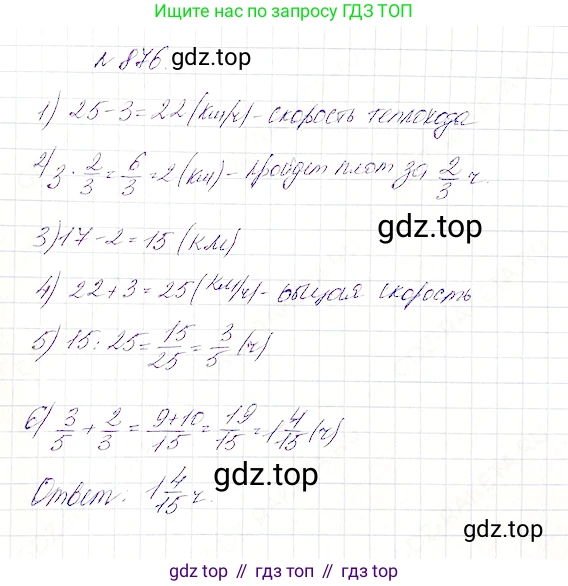 Ищите нас по запросу ГДЗ ТОП
№ 876. gdz.top
1) 25-3=22 (км/ч) - скорость теплохода
2) 3 · 2/3 = 6/3 = 2 (км) - пройдет плот за 2/3 ч.
gdz.top
3) 17-2=15 (км)
4) 22+3=25 (км/ч) - общая скорость
5) 15:25 = 15/25 = 3/5 (ч)
6) 3/5 + 2/3 = 9+10/15 = 19/15 = 1 4/15 (ч)
gdz.top
Ответ: 1 4/15 ч.
gdz.top
gdz.top // гдз топ // гдз.top